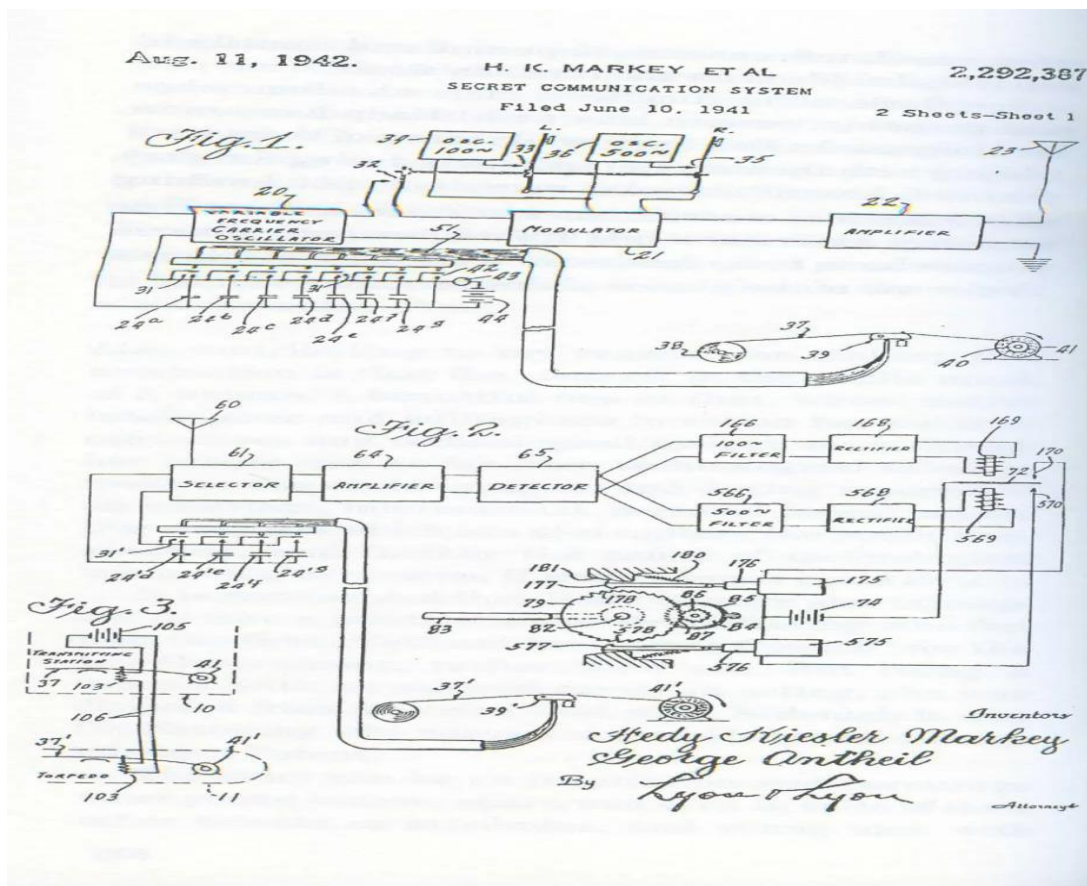 Aug. 11, 1942.
H. K. MARKEY ET AL
2,292,387
SECRET COMMUNICATION SYSTEM
Filed June 10, 1941
2 Sheets-Sheet 1
Fig. 1.
34
OSC.
100~
33
L.
36
OSC.
500~
R.
35
32
23
20
VARIABLE
FREQUENCY
CARRIER
OSCILLATOR
51
MODULATOR
21
22
AMPLIFIER
31
31
42
43
44
24a
24b
24c
24d
24e
24f
24g
37
38
39
40
41
60
Fig. 2.
61
SELECTOR
64
AMPLIFIER
65
DETECTOR
166
100~
FILTER
168
RECTIFIER
169
170
72
566
500~
FILTER
568
RECTIFIER
569
570
31'
24'd
24'e
24'f
24'g
181
177
180
176
175
79
178
86
85
74
83
82
578
87
84
577
576
575
Fig. 3.
105
TRANSMITTING
STATION
37
41
103
10
106
37'
41'
TORPEDO
103
11
37'
39'
41'
Inventors
Hedy Kiesler Markey
George Antheil
By
Lyon & Lyon
Attorneys